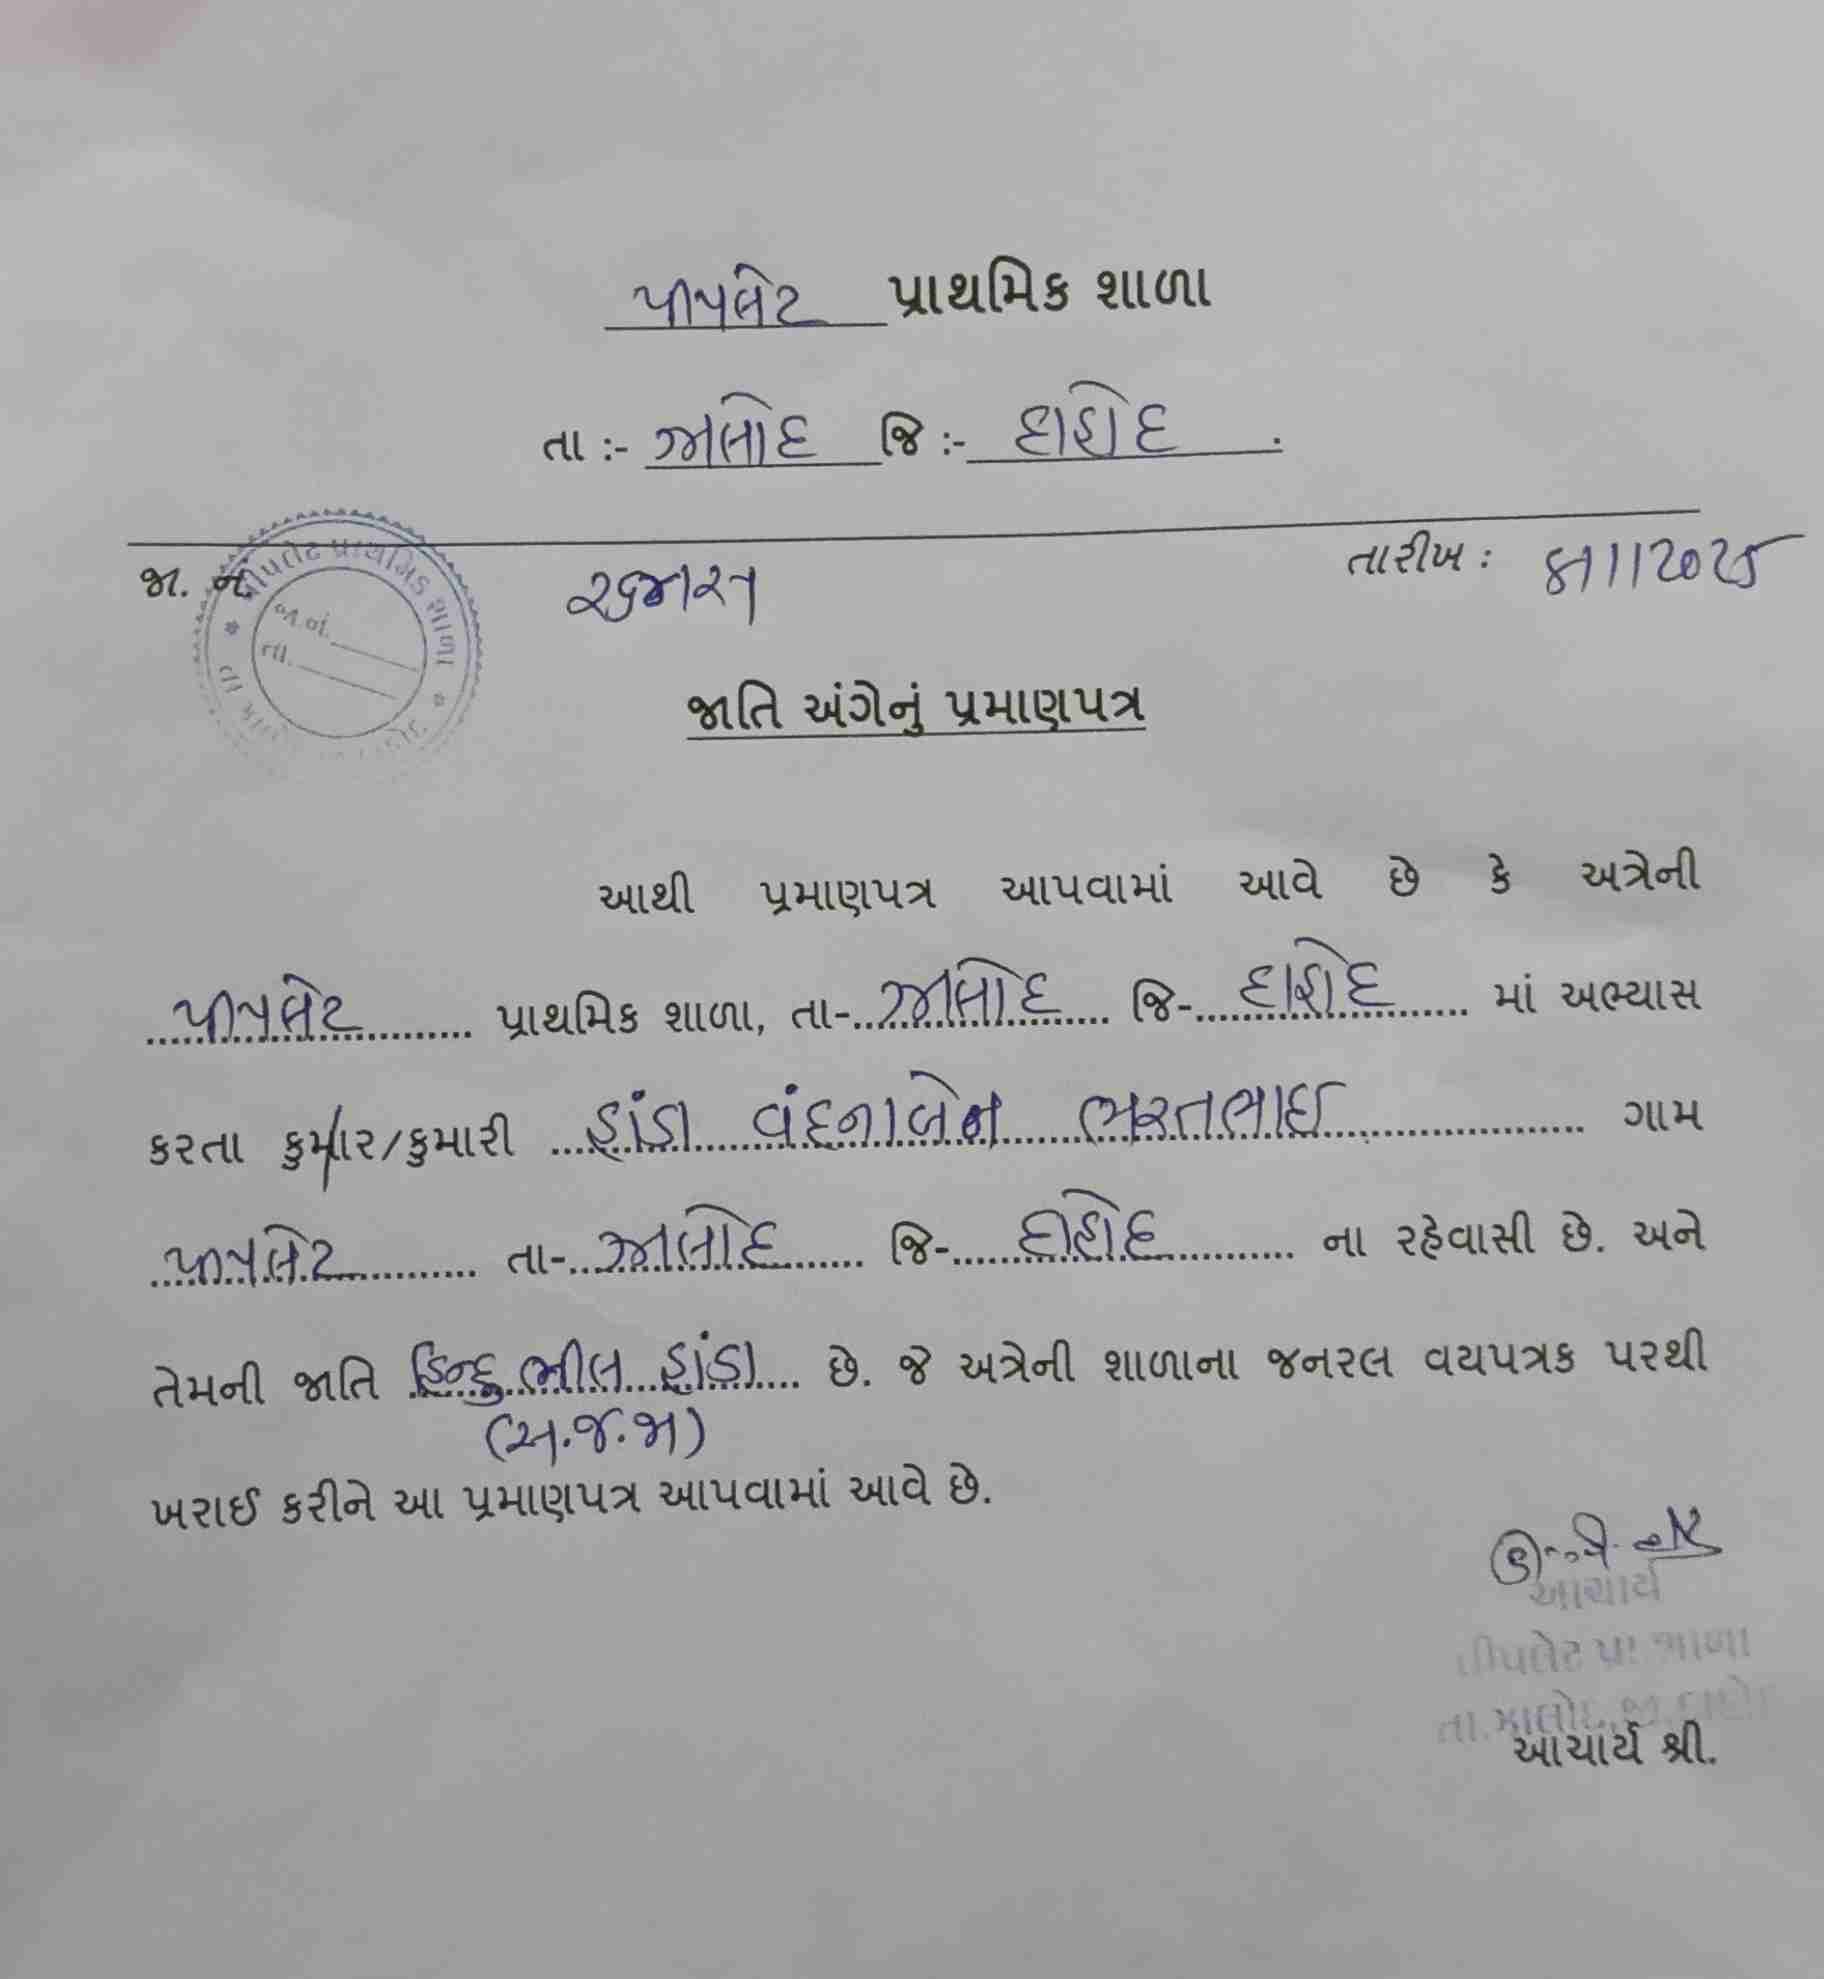 પીપલેટ પ્રાથમિક શાળા
તા :- ઝાલોદ જિ :- દાહોદ .
જા. નં.
તારીખ :
પીપલેટ પ્રાથમિક શાળા
જા.નં.
તા.
જાતિ અંગેનું પ્રમાણપત્ર
આથી પ્રમાણપત્ર આપવામાં આવે છે કે અત્રેની
પીપલેટ પ્રાથમિક શાળા, તા- ઝાલોદ જિ- દાહોદ માં અભ્યાસ
કરતા કુમાર/કુમારી ડાંડા વંદનાબેન ભરતભાઈ ગામ
પીપલેટ તા- ઝાલોદ જિ- દાહોદ ના રહેવાસી છે. અને
તેમની જાતિ હિન્દુ ભીલ ડાંડા છે. જે અત્રેની શાળાના જનરલ વયપત્રક પરથી
(અ.જ.જા)
ખરાઈ કરીને આ પ્રમાણપત્ર આપવામાં આવે છે.
આચાર્ય
પીપલેટ પ્રા શાળા
તા.ઝાલોદ,જી.દાહોદ
આચાર્ય શ્રી.